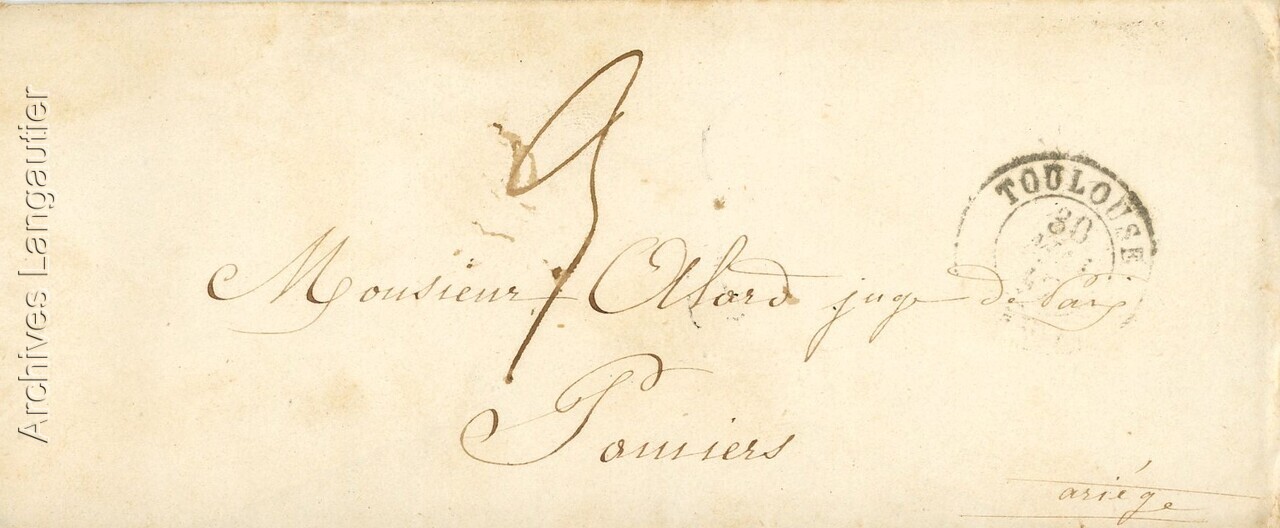 Archives Langautier
3
TOULOUSE
30
Monsieur Alard juge de Paix
Pamiers
ariége